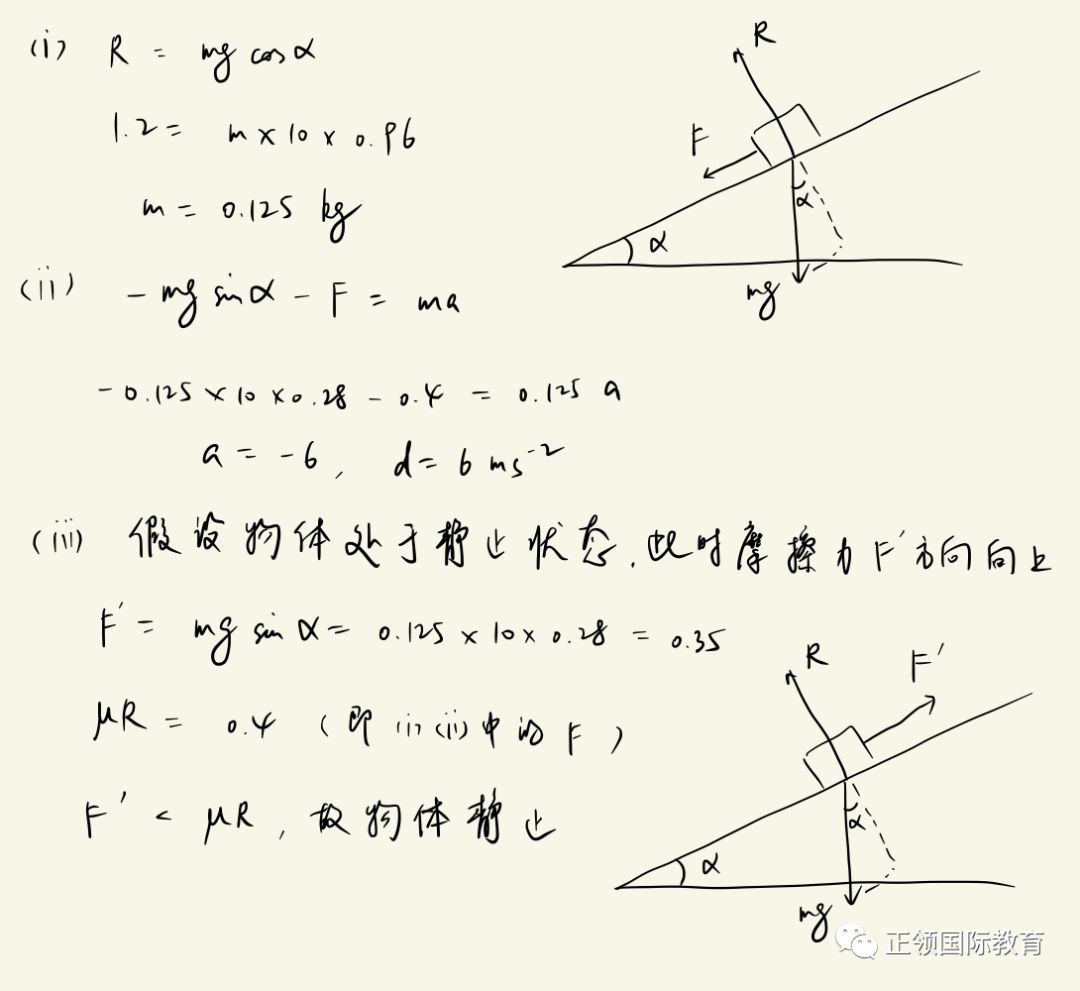 (i) R = mg cosα
1.2 = m × 10 × 0.96
m = 0.125 kg
R
F
α
α
mg
(ii) - mg sinα - F = ma
- 0.125 × 10 × 0.28 - 0.4 = 0.125 a
a = -6, d = 6 ms⁻²
(iii) 假设物体处于静止状态,此时摩擦力F′方向向上
F′ = mg sinα = 0.125 × 10 × 0.28 = 0.35
μR = 0.4 (即(i)(ii)中的F)
F′ < μR, 故物体静止
R
F′
α
α
mg
正领国际教育